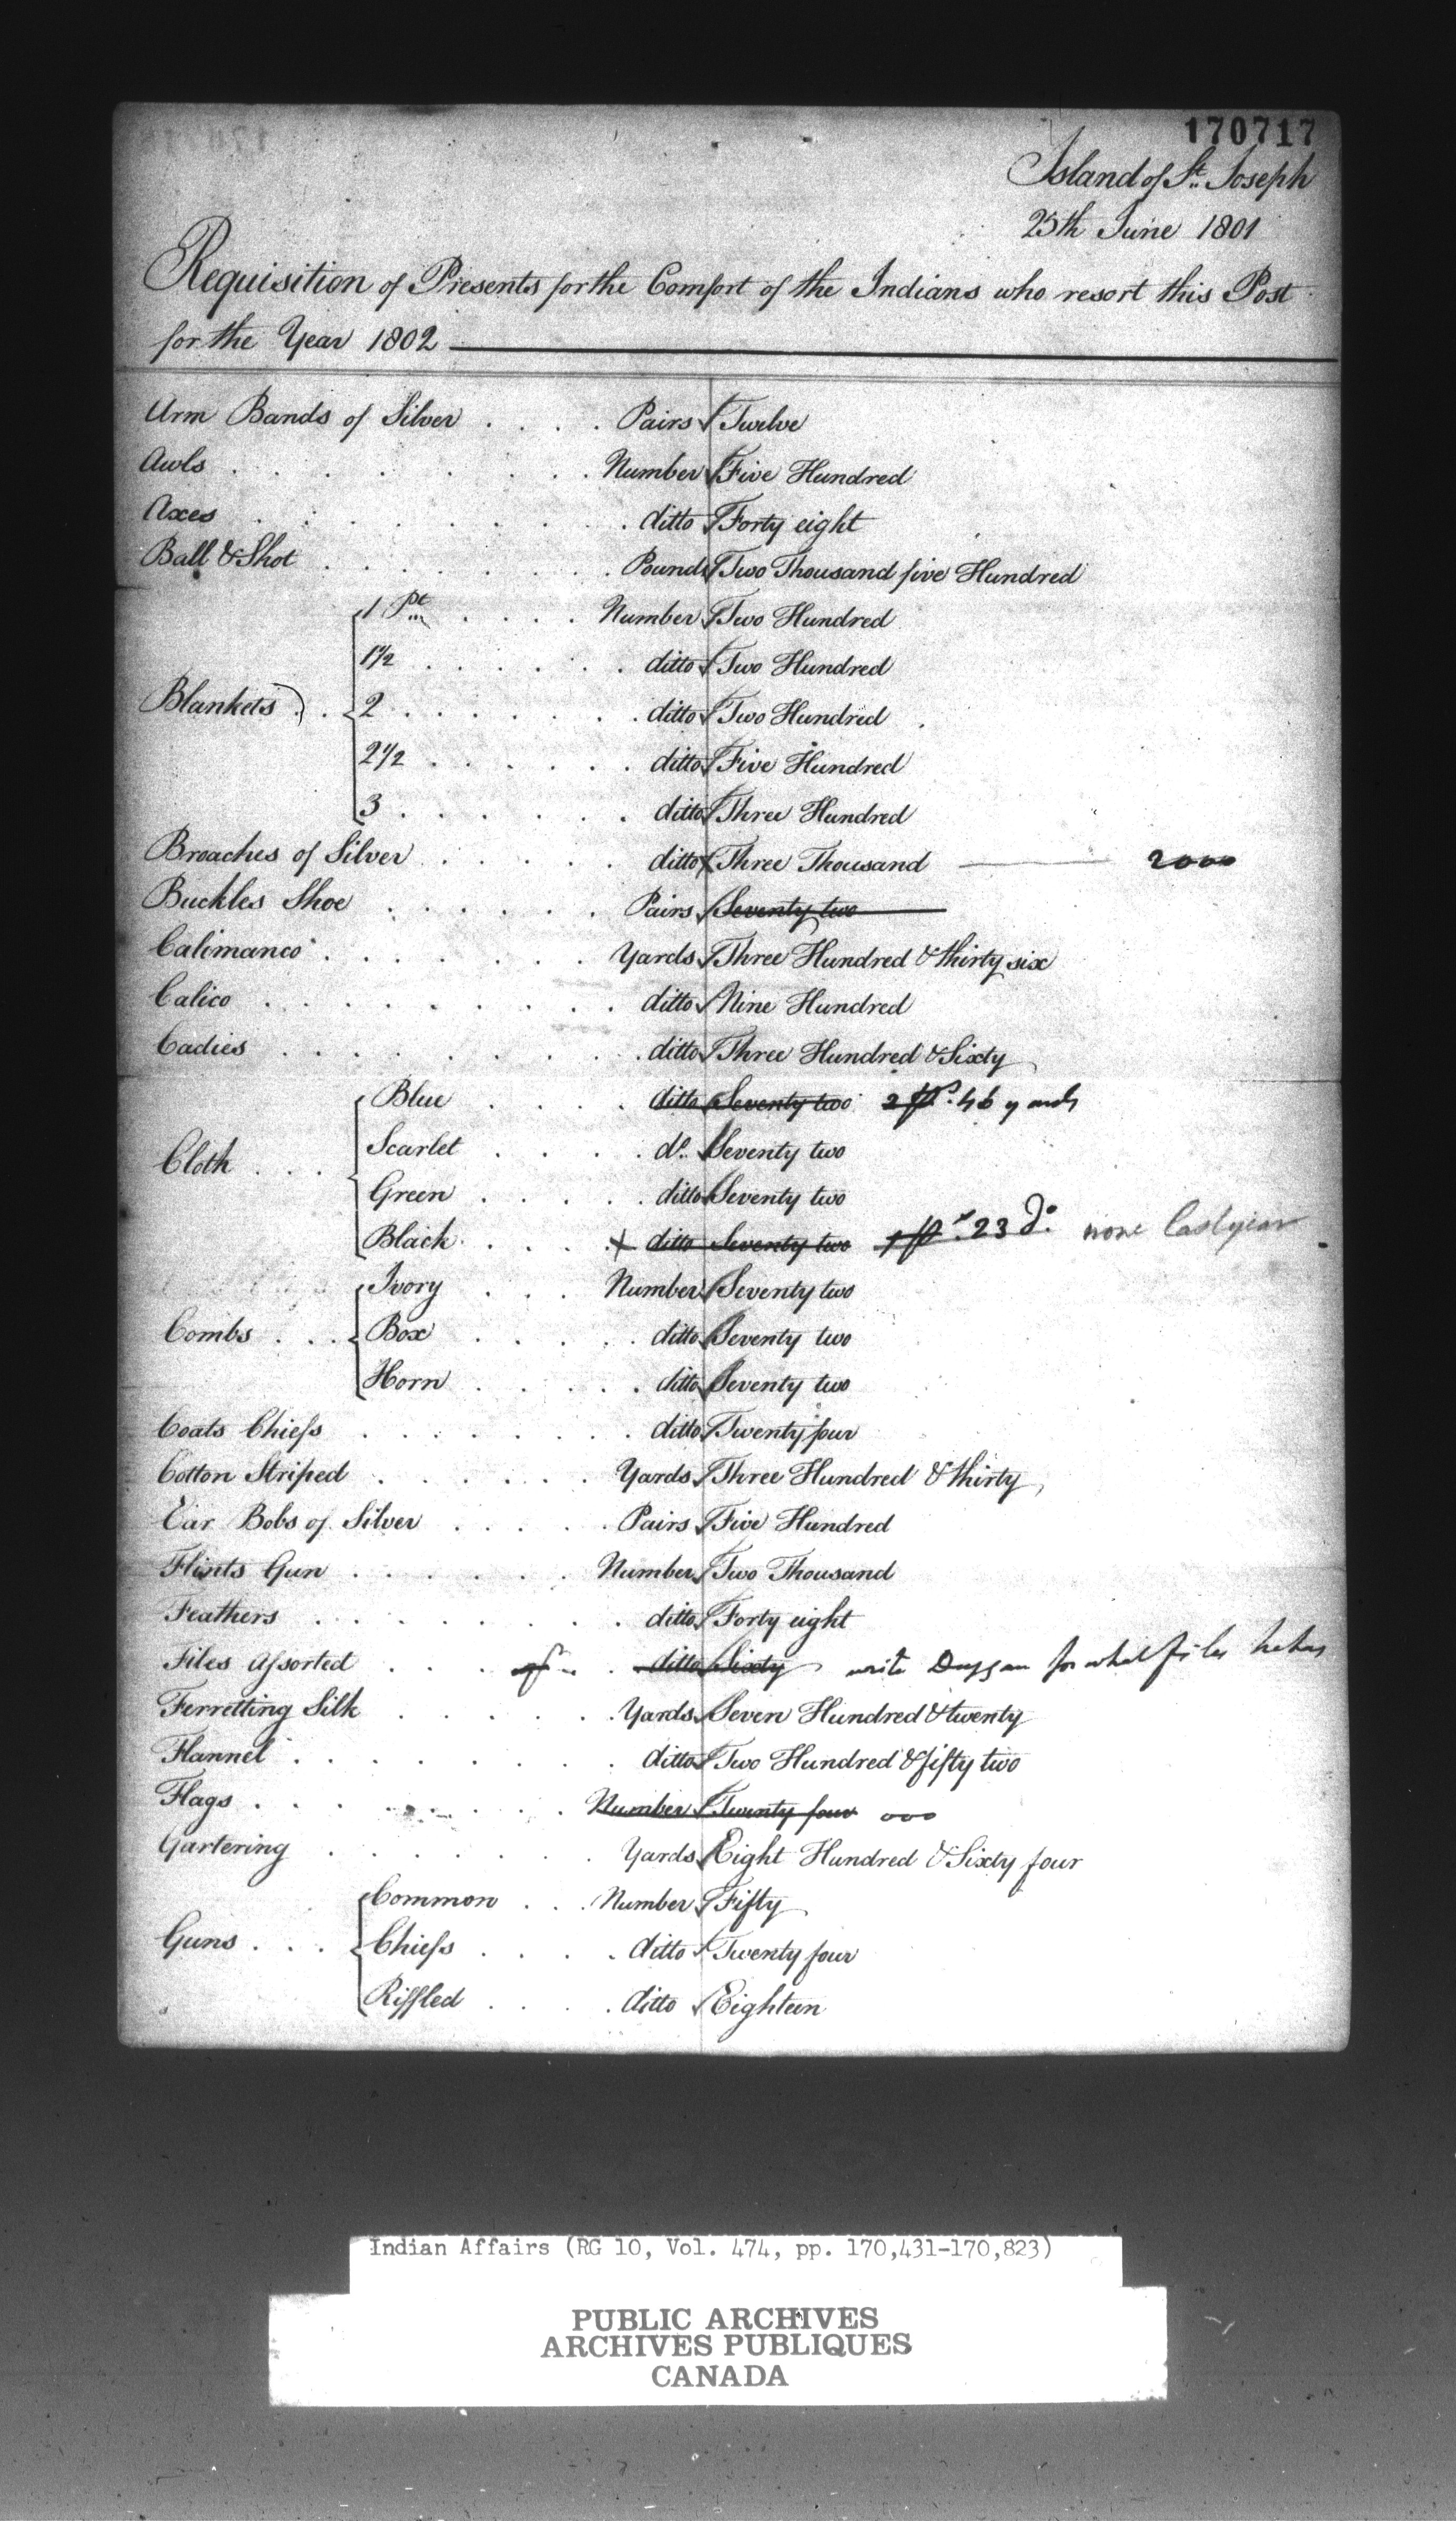 170717
Island of St. Joseph
25th June 1801
Requisition of Presents for the Comfort of the Indians who resort this Post
for the Year 1802
Arm Bands of Silver . . . . Pairs Twelve
Awls . . . . . . . . Number Five Hundred
Axes . . . . . . . . ditto Forty eight
Ball & Shot . . . . . . . Pounds Two Thousand five Hundred
1 Pt . . . . Number Two Hundred
1 1/2 . . . . . ditto Two Hundred
Blankets . . 2 . . . . . . ditto Two Hundred
2 1/2 . . . . . ditto Five Hundred
3 . . . . . . ditto Three Hundred
Broaches of Silver . . . . . ditto Three Thousand 2000
Buckles Shoe . . . . . . Pairs Seventy two
Calimanco . . . . . . Yards Three Hundred & thirty six
Calico . . . . . . . . ditto Nine Hundred
Cadies . . . . . . . . ditto Three Hundred & Sixty
Blue . . . . ditto Seventy two 2 ps. 46 yards
Scarlet . . . . do. Seventy two
Cloth . . .
Green . . . . . ditto Seventy two
Black . . . . + ditto Seventy two 1 ps. 23 do. none Last year
Ivory . . . Number Seventy two
Combs . . . Box . . . . . ditto Seventy two
Horn . . . . . ditto Seventy two
Coats Chiefs . . . . . . . ditto Twenty four
Cotton Striped . . . . . . Yards Three Hundred & thirty
Ear Bobs of Silver . . . . Pairs Five Hundred
Flints Gun . . . . . . Number Two Thousand
Feathers . . . . . . . ditto Forty eight
Files assorted . . . . . ditto Sixty write Duggan for what files he has
Ferretting Silk . . . . . Yards Seven Hundred & twenty
Flannel . . . . . . . ditto Two Hundred & fifty two
Flags . . . . . . . Number Twenty four 000
Gartering . . . . . . . Yards Eight Hundred & Sixty four
Common . . . Number Fifty
Guns . . . Chiefs . . . . ditto Twenty four
Riffled . . . . ditto Eighteen
Indian Affairs (RG 10, Vol. 474, pp. 170,431-170,823)
PUBLIC ARCHIVES
ARCHIVES PUBLIQUES
CANADA